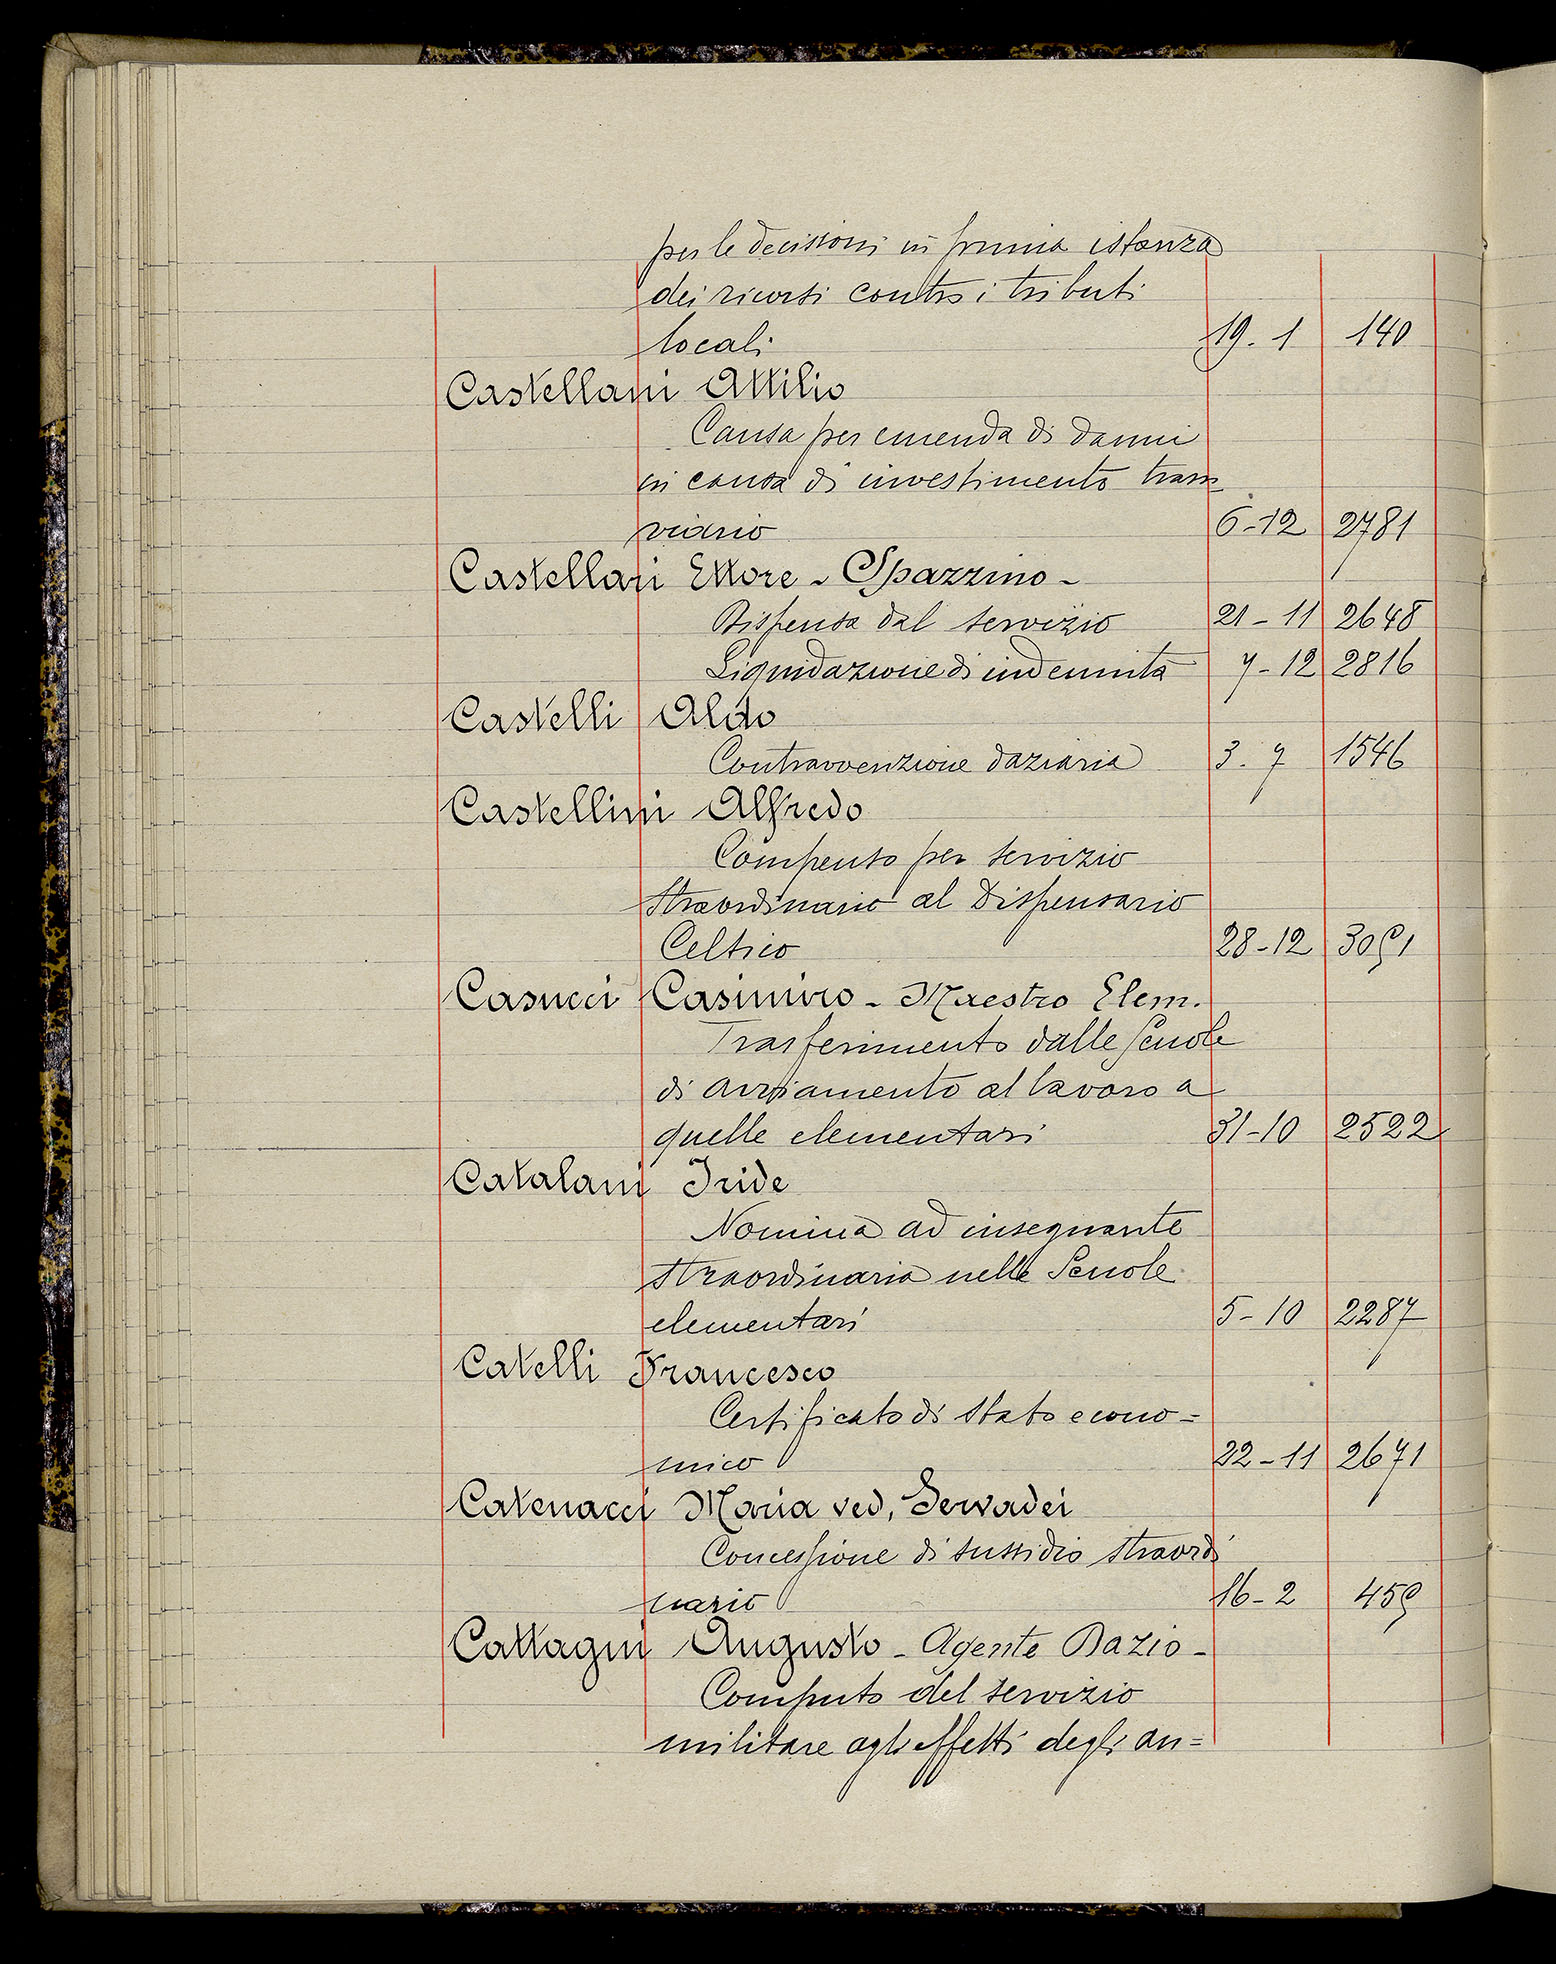 per le decisioni in prima istanza
dei ricorsi contro i tributi
locali 19. 1 140
Castellani Attilio
Causa per emenda di danni
in causa di investimento tram
viario 6-12 2781
Castellari Ettore - Spazzino -
Dispensa dal servizio 21-11 2648
Liquidazione di indennità 7-12 2816
Castelli Aldo
Contravvenzione daziaria 3. 7 1546
Castellini Alfredo
Compenso per servizio
straordinario al Dispensario
Celtico 28-12 3091
Casucci Casimiro - Maestro Elem.
Trasferimento dalle Scuole
di avviamento al lavoro a
quelle elementari 31-10 2522
Catalani Iride
Nomina ad insegnante
straordinaria nelle Scuole
elementari 5-10 2287
Catelli Francesco
Certificato di stato econo=
mico 22-11 2671
Catenacci Maria ved, Servadei
Concessione di sussidio straordi
nario 16-2 459
Cattagni Augusto - Agente Dazio -
Computo del servizio
militare agli effetti degli an=